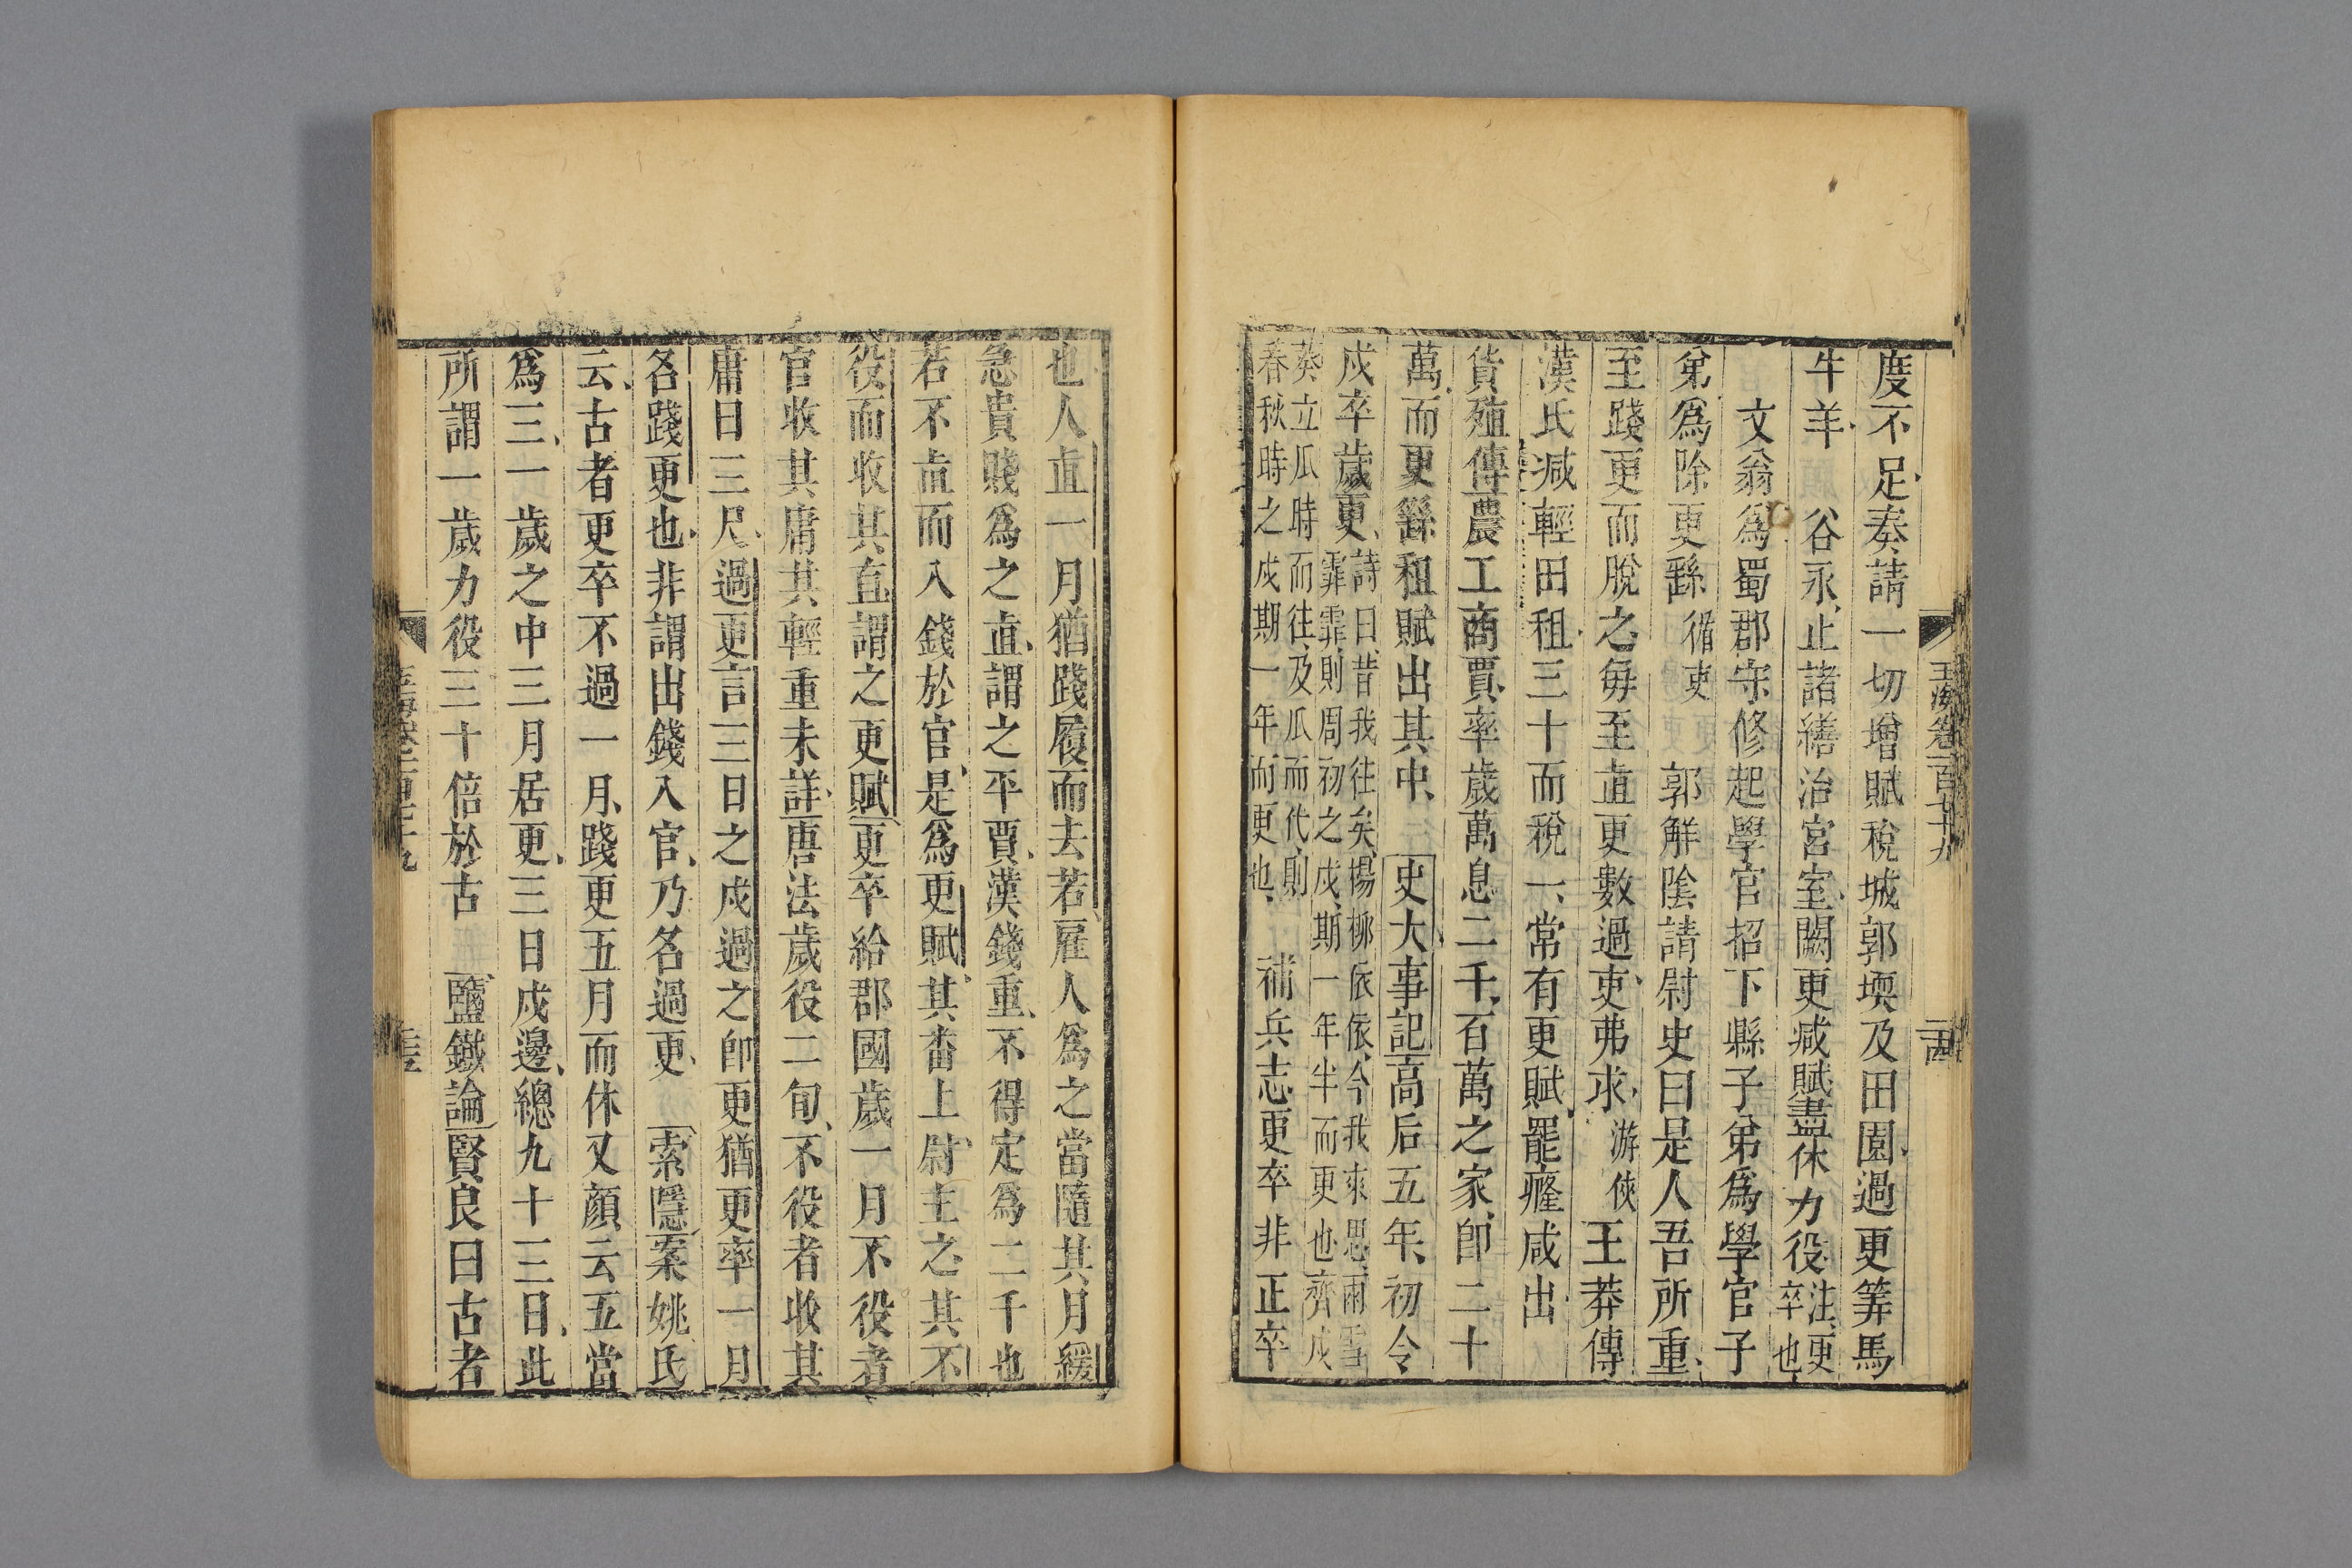 度不足奏請一切增賦稅城郭堧及田園過更筭馬
牛羊 谷永止諸繕治宮室闕更减賦盡休力役注更卒也
文翁爲蜀郡守修起學官招下縣子弟爲學官子
弟爲除更繇循吏 郭解陰請尉史曰是人吾所重
至踐更而脫之每至直更數過吏弗求游俠王莽傳
漢氏减輕田租三十而稅一常有更賦罷癃咸出
貨殖傳農工商賈率歲萬息二千百萬之家即二十
萬而更繇租賦出其中 史大事記高后五年初令
戍卒歲更詩曰昔我往矣楊柳依依今我來思雨雪
霏霏則周初之戍期一年半而更也齊戍
葵丘瓜時而往及瓜而代則
春秋時之戍期一年而更也 補兵志更卒非正卒
玉海卷一百卅九
也人直一月猶踐履而去若雇人爲之當隨其月緩
急貴賤爲之直謂之平賈漢錢重不得定爲二千也
若不直而入錢於官是爲更賦其畨上尉主之其不
役而收其直謂之更賦更卒給郡國歲一月不役者
官收其庸其輕重未詳唐法歲役二旬不役者收其
庸日三尺過更言三日之戍過之即更猶更率一月
各踐更也非謂出錢入官乃名過更 索隱案姚氏
云古者更卒不過一月踐更五月而休又顔云五當
爲三一歲之中三月居更三日戍邊總九十三日此
所謂一歲力役三十倍於古 鹽鐵論賢良曰古者